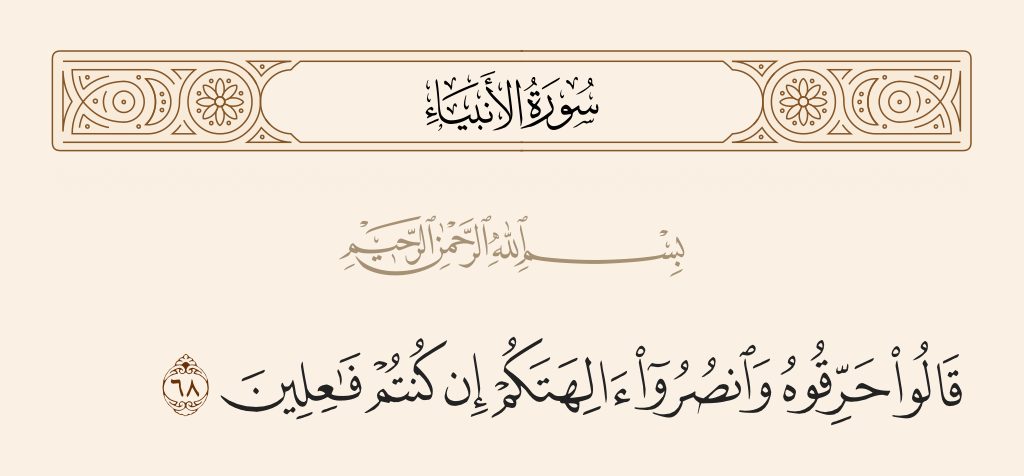 سُورَةُ الأَنبِيَاءِ
بِسْمِ ٱللَّهِ ٱلرَّحْمَٰنِ ٱلرَّحِيمِ
قَالُوا۟ حَرِّقُوهُ وَٱنصُرُوٓا۟ ءَالِهَتَكُمْ إِن كُنتُمْ فَـٰعِلِينَ ٦٨